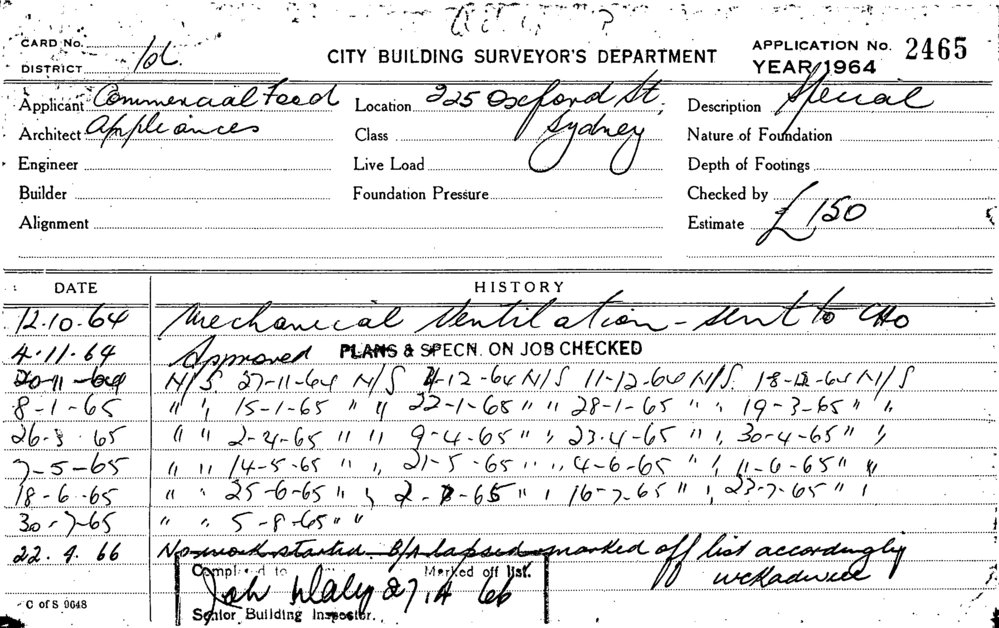 CARD No.
DISTRICT
CITY BUILDING SURVEYOR'S DEPARTMENT
APPLICATION No. 2465
YEAR 1964
Applicant Commercial Food Location 225 Oxford St, Description Special
Architect Appliances Class Sydney Nature of Foundation
Engineer Live Load Depth of Footings
Builder Foundation Pressure Checked by
Alignment Estimate £150
DATE HISTORY
12.10.64 Mechanical Ventilation - sent to CHO
4.11.64 Approved PLANS & SPECN. ON JOB CHECKED
20-11-64 N/S 27-11-64 N/S 4-12-64 N/S 11-12-64 N/S. 18-12-64 N/S
8-1-65 " " 15-1-65 " " 22-1-65 " " 28-1-65 " " 19-3-65 " "
26-3-65 " " 2-4-65 " " 9-4-65 " " 23.4-65 " " 30-4-65 " "
7-5-65 " " 14-5-65 " " 21-5-65 " " 4-6-65 " " 11-6-65 " "
18-6-65 " " 25-6-65 " " 2-7-65 " " 16-7-65 " " 23-7-65 " "
30-7-65 " " 5-8-65 " "
22.4.66 No work started B/A lapsed marked off list accordingly
Completed to Marked off list.
John Daly 27.4 66
Senior Building Inspector.
C of S 9648